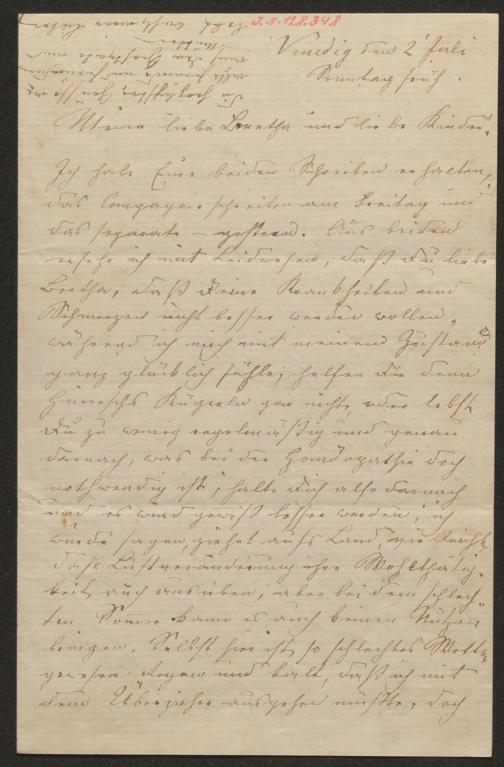 J.N. 128.348
Venedig den 2 Juli
Sonntag früh.
Meine liebe Bertha und liebe Kinder!
Ich habe Eure beiden Schreiben erhalten,
das Compagnie schreiben am Freitag und
das separate – gestern. Aus beiden
ersehe ich mit Leidwesen, daß Du liebe
Bertha, daß Deine Krankheiten und
Schmerzen nicht besser werden wollen,
während ich mich mit meinem Zustand
ganz glücklich fühle; helfen Dir denn
Kügeln gar nicht, oder lebst
Du zu wenig regelmäßig und genau
darnach, was bei der Homöopathie doch
nothwendig ist; halte Dich also darnach
und es wird gewiß besser werden; ich
würde sagen ziehet aufs Land, vielleicht
daß Luftveränderung ihre Wohlthätig-
keit auch ausüben, aber bei dem schlech-
ten Sommer kann es auch keinen Nutzen
bringen. Selbst hier ist so schlechtes Wetter
gewesen Regen und kalt, daß ich mit
dem Überzieher ausgehen mußte, doch